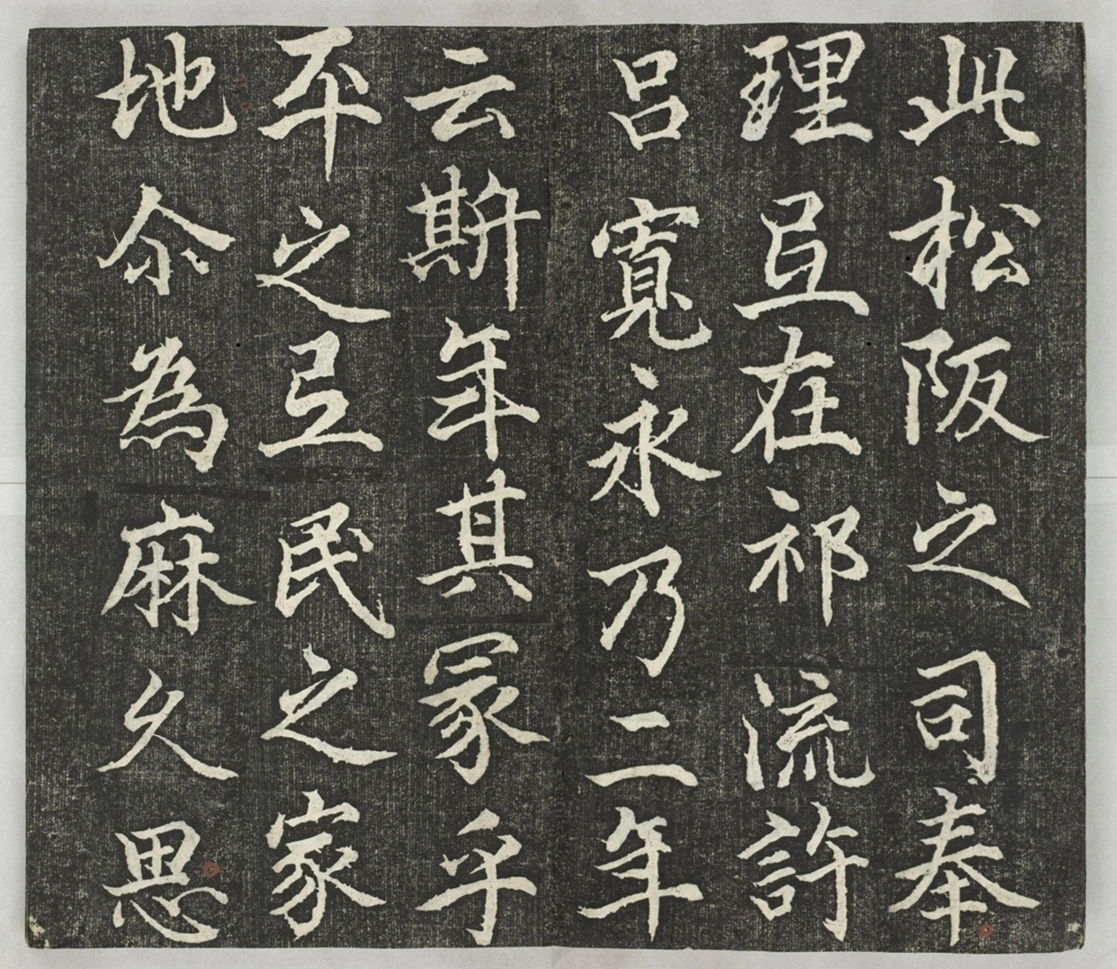 此松阪之司奉
理弖在祁流許
呂寛永乃二年
云斯年其冢乎
平之弖民之家
地尒為麻久思